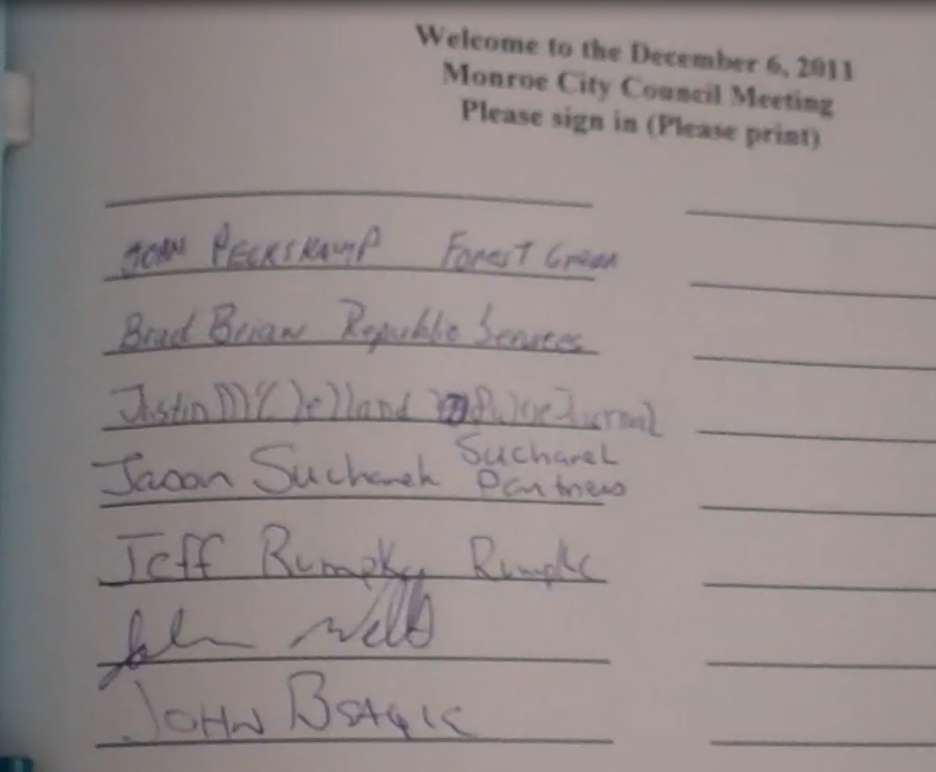 Welcome to the December 6, 2011
Monroe City Council Meeting
Please sign in (Please print)
JOHN PECKSKAMP Forest Green
Brad Brian Republic Services
Justin McClelland Pulse Journal
Jason Sucharek Sucharek
Partners
Jeff Rumpke Rumpke
John
JOHN